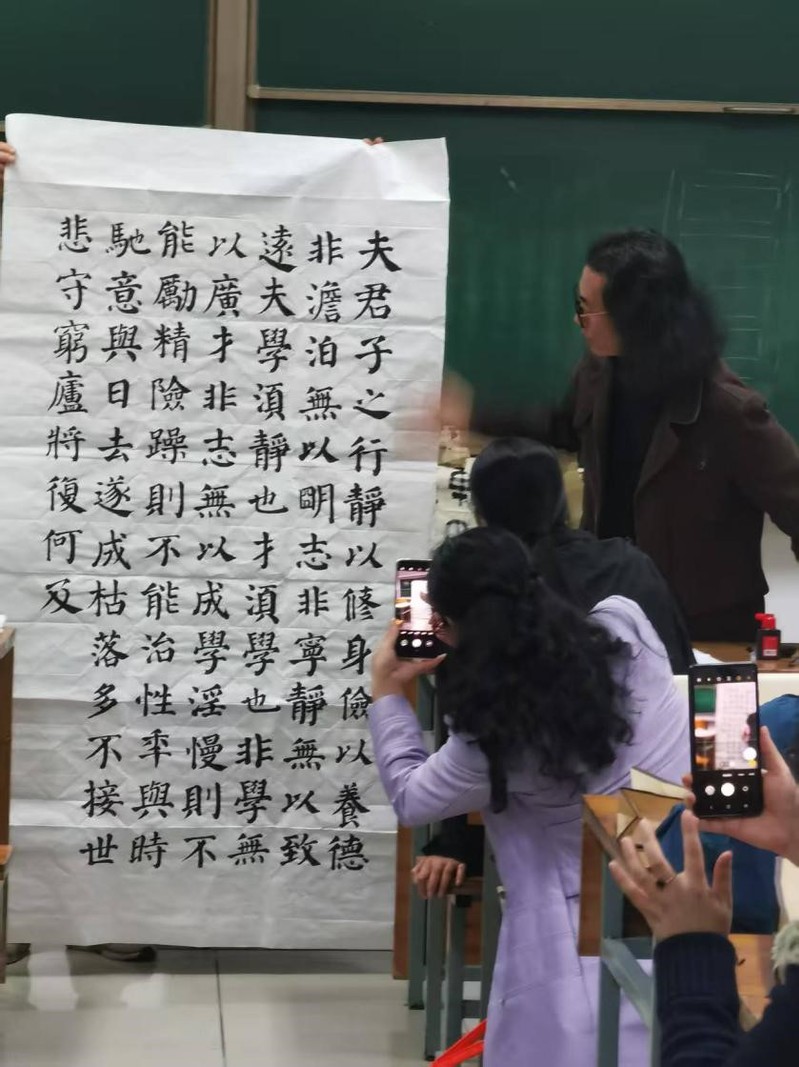 夫君子之行靜以修身儉以養德
非澹泊無以明志非寧靜無以致
遠夫學須靜也才須學也非學無
以廣才非志無以成學淫慢則不
能勵精險躁則不能治性年與時
馳意與日去遂成枯落多不接世
悲守窮廬將復何及